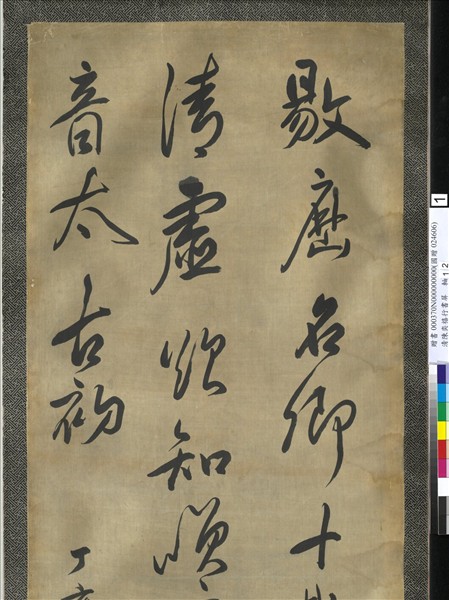 敭歷名卿十
清虛欲知
音太古初 丁
1
贈書 000370N000000000(國贈 024606)
清陳奕禧行書 軸 1 2